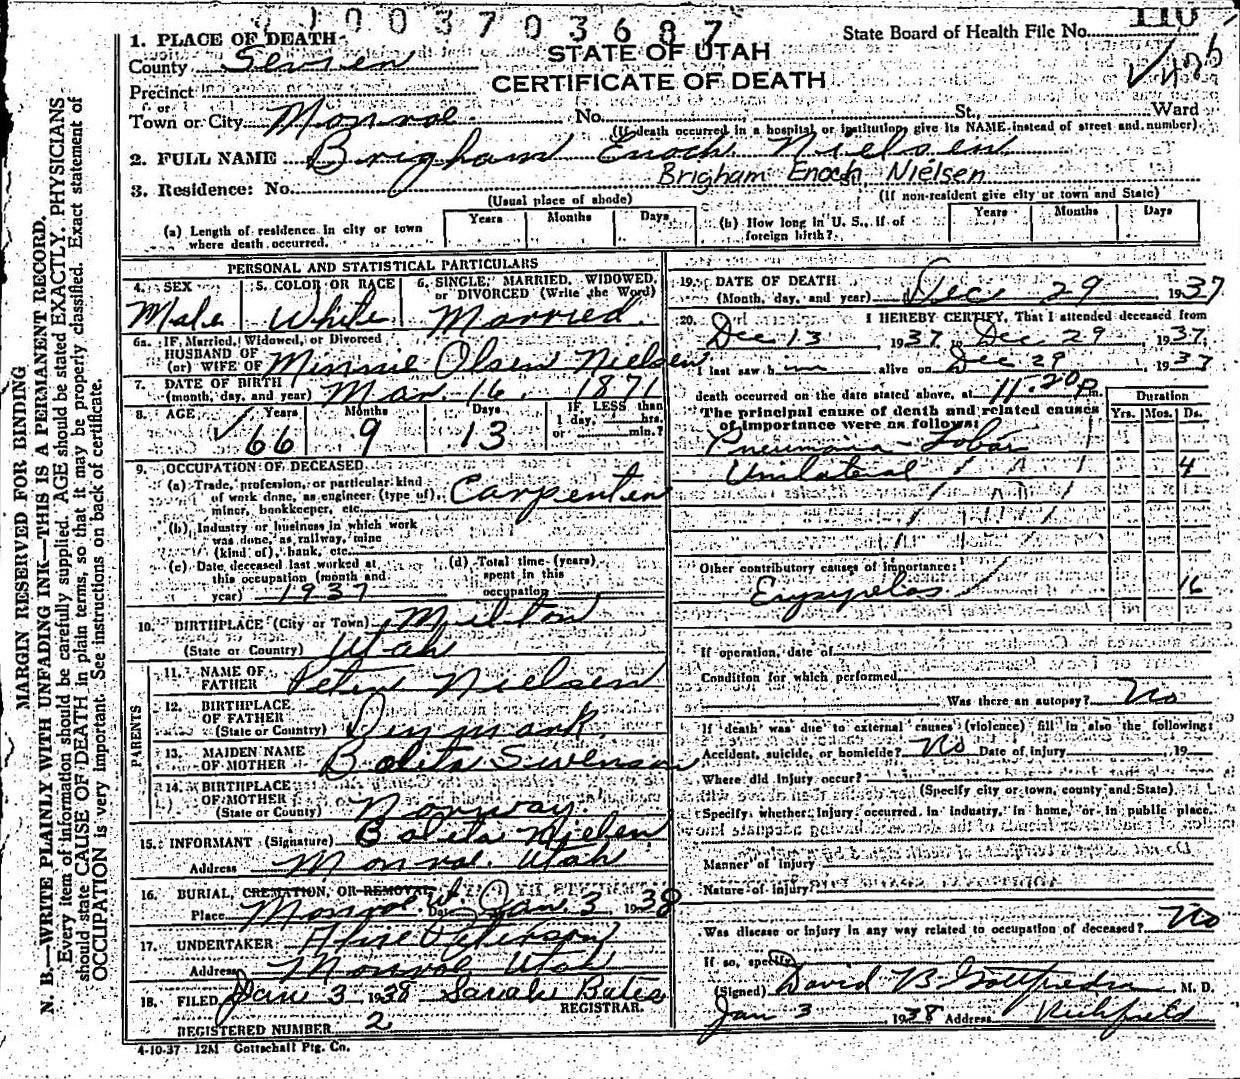 1003703687
110
State Board of Health File No.
1. PLACE OF DEATH
STATE OF UTAH
County Sevier
CERTIFICATE OF DEATH
Precinct
or
Town or City Monroe No. St., Ward
(If death occurred in a hospital or institution, give its NAME instead of street and number)
2. FULL NAME Brigham Enoch Nielsen
Brigham Enoch Nielsen
3. Residence: No.
(Usual place of abode)
(If non-resident give city or town and State)
(a) Length of residence in city or town where death occurred. Years Months Days
(b) How long in U. S., if of foreign birth? Years Months Days
PERSONAL AND STATISTICAL PARTICULARS
4. SEX
Male
5. COLOR OR RACE
White
6. SINGLE, MARRIED, WIDOWED, or DIVORCED (Write the Word)
Married
6a. IF Married, Widowed, or Divorced
HUSBAND OF
(or) WIFE OF Minnie Olsen Nielsen
7. DATE OF BIRTH
(month, day, and year) Mar. 16, 1871
8. AGE Years Months Days IF LESS than
1 day, hrs.
or min.?
66 9 13
9. OCCUPATION OF DECEASED
(a) Trade, profession, or particular kind
of work done, as engineer (type of),
miner, bookkeeper, etc. Carpenter
(b) Industry or business in which work
was done, as railway, mine
(kind of), bank, etc.
(c) Date deceased last worked at
this occupation (month and
year) 1937
(d) Total time (years)
spent in this
occupation
10. BIRTHPLACE (City or Town) Milton
(State or Country) Utah
PARENTS
11. NAME OF
FATHER Peter Nielsen
12. BIRTHPLACE
OF FATHER
(State or Country) Denmark
13. MAIDEN NAME
OF MOTHER Boleta Swensen
14. BIRTHPLACE
OF MOTHER
(State or Country) Norway
15. INFORMANT (Signature) Boleta Nielsen
Address Monroe Utah
16. BURIAL, CREMATION, OR REMOVAL
Place Monroe Ut. Date Jan. 3, 1938
17. UNDERTAKER Peterson
Address Monroe Utah
18. FILED Jan 3 1938 Sarah Bates
REGISTRAR.
REGISTERED NUMBER 2
4-10-37 12M Gottschall Ptg. Co.
19. DATE OF DEATH
(Month, day, and year) Dec 29 1937
20. I HEREBY CERTIFY, That I attended deceased from
Dec 13, 1937, to Dec 29, 1937,
I last saw him alive on Dec 29, 1937
death occurred on the date stated above, at 11:20 P m.
The principal cause of death and related causes
of importance were as follows:
Duration
Yrs. Mos. Ds.
Pneumonia - Lobar
Unilateral 4
Other contributory causes of importance:
Erysypelas 16
If operation, date of
Condition for which performed
Was there an autopsy? No
If death was due to external causes (violence) fill in also the following:
Accident, suicide, or homicide? No Date of injury , 19
Where did injury occur?
(Specify city or town, county and State)
Specify whether injury occurred in industry, in home, or in public place.
Manner of injury
Nature of injury
Was disease or injury in any way related to occupation of deceased? No
If so, specify
(Signed) David B Gottfredson M. D.
Jan 3 1938 Address Richfield
MARGIN RESERVED FOR BINDING
N. B.—WRITE PLAINLY WITH UNFADING INK—THIS IS A PERMANENT RECORD.
Every item of information should be carefully supplied. AGE should be stated EXACTLY. PHYSICIANS
should state CAUSE OF DEATH in plain terms, so that it may be properly classified. Exact statement of
OCCUPATION is very important. See instructions on back of certificate.